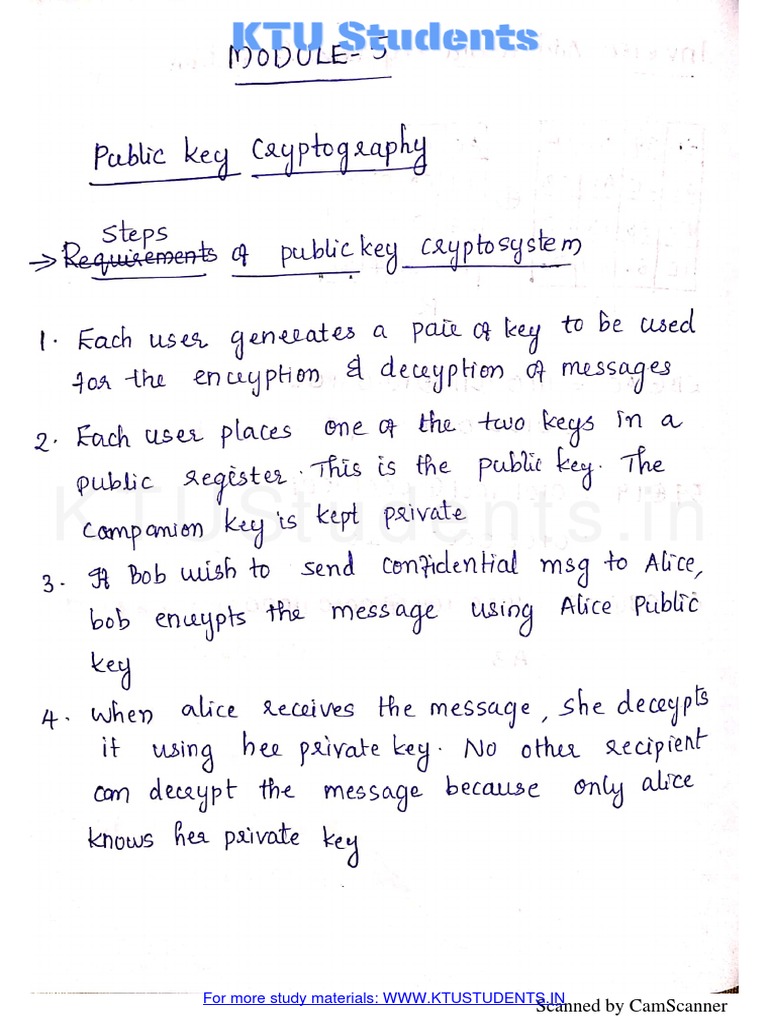 KTU Students
MODULE-5
Public key Cryptography
Steps
→ Requirements of public key cryptosystem
1. Each user generates a pair of key to be used
for the encryption & decryption of messages
2. Each user places one of the two keys in a
public register. This is the public key. The
KTUStudents.in
companion key is kept private
3. If Bob wish to send confidential msg to Alice,
bob encrypts the message using Alice Public
key
4. When alice receives the message, she decrypts
it using her private key. No other recipient
can decrypt the message because only alice
knows her private key
For more study materials: WWW.KTUSTUDENTS.IN
Scanned by CamScanner